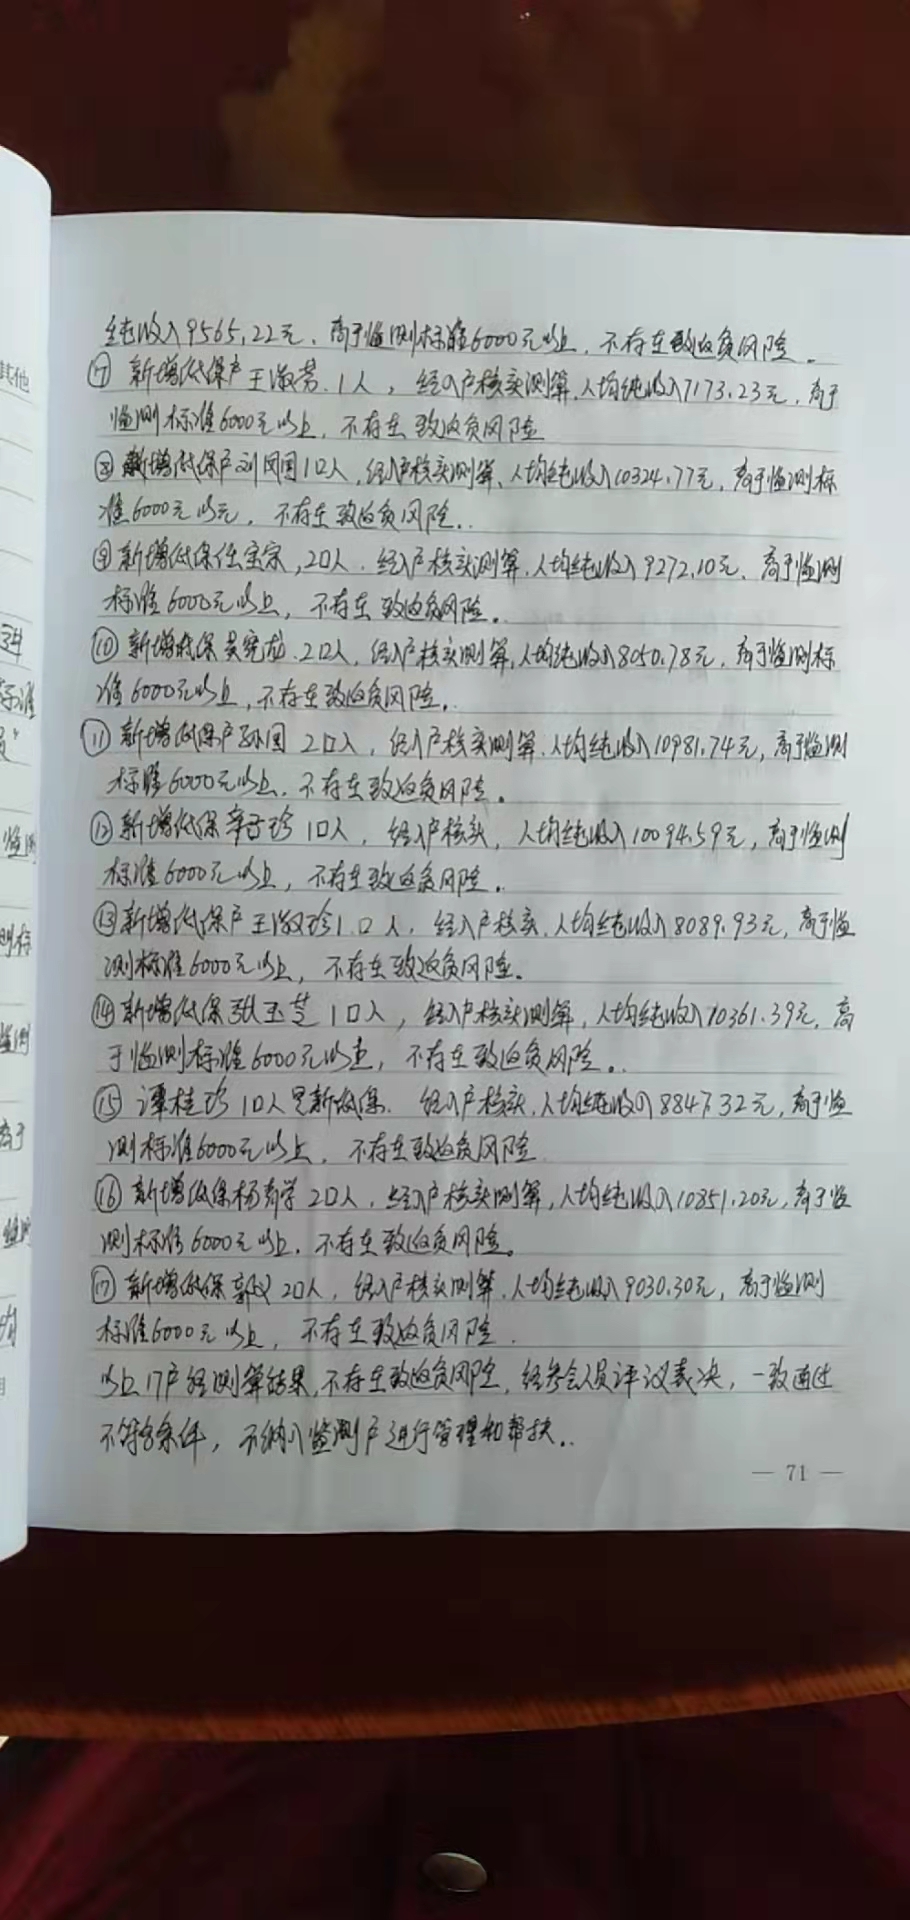 纯收入9565.22元，高于监测标准6000元以上，不存在致返贫风险。
⑦ 新增低保户王淑芳.1人，经入户核实测算，人均纯收入7173.23元，高于
监测标准6000元以上，不存在致返贫风险
⑧ 新增低保户刘凤国1口人，经入户核实测算，人均纯收入10324.77元，高于监测标
准6000元以元，不存在致返贫风险..
⑨新增低保任宝宗，2口人.经入户核实测算，人均纯收入9272.10元，高于监测
标准6000元以上，不存在致返贫风险。
⑩ 新增低保 2口人，经入户核实测算，人均纯收入8050.78元，高于监测标
准6000元以上，不存在致返贫风险..
⑪ 新增低保户 2口人，经入户核实测算，人均纯收入10981.74元，高于监测
标准6000元以上，不存在致返贫风险。
⑫ 新增低保 1口人，经入户核实，人均纯收入10094.59元，高于监测
标准6000元以上，不存在致返贫风险..
⑬新增低保户王淑珍1.口人，经入户核实，人均纯收入8089.93元，高于监
测标准6000元以上，不存在致返贫风险。
⑭新增低保张玉芝1口人，经入户核实测算，人均纯收入10361.39元，高
于监测标准6000元以上，不存在致返贫风险..
⑮ 谭桂珍1口人是新低保.经入户核实，人均纯收入8847.32元，高于监
测标准6000元以上，不存在致返贫风险
⑯ 新增低保杨 学2口人，经入户核实测算，人均纯收入10851.20元，高于监
测标准6000元以上，不存在致返贫风险。
⑰ 新增低保 2口人，经入户核实测算，人均纯收入9030.30元，高于监测
标准6000元以上，不存在致返贫风险.
以上17户经测算结果，不存在致返贫风险，经参会人员评议表决，一致通过
不符合条件，不纳入监测户进行管理和帮扶..
— 71 —
其他